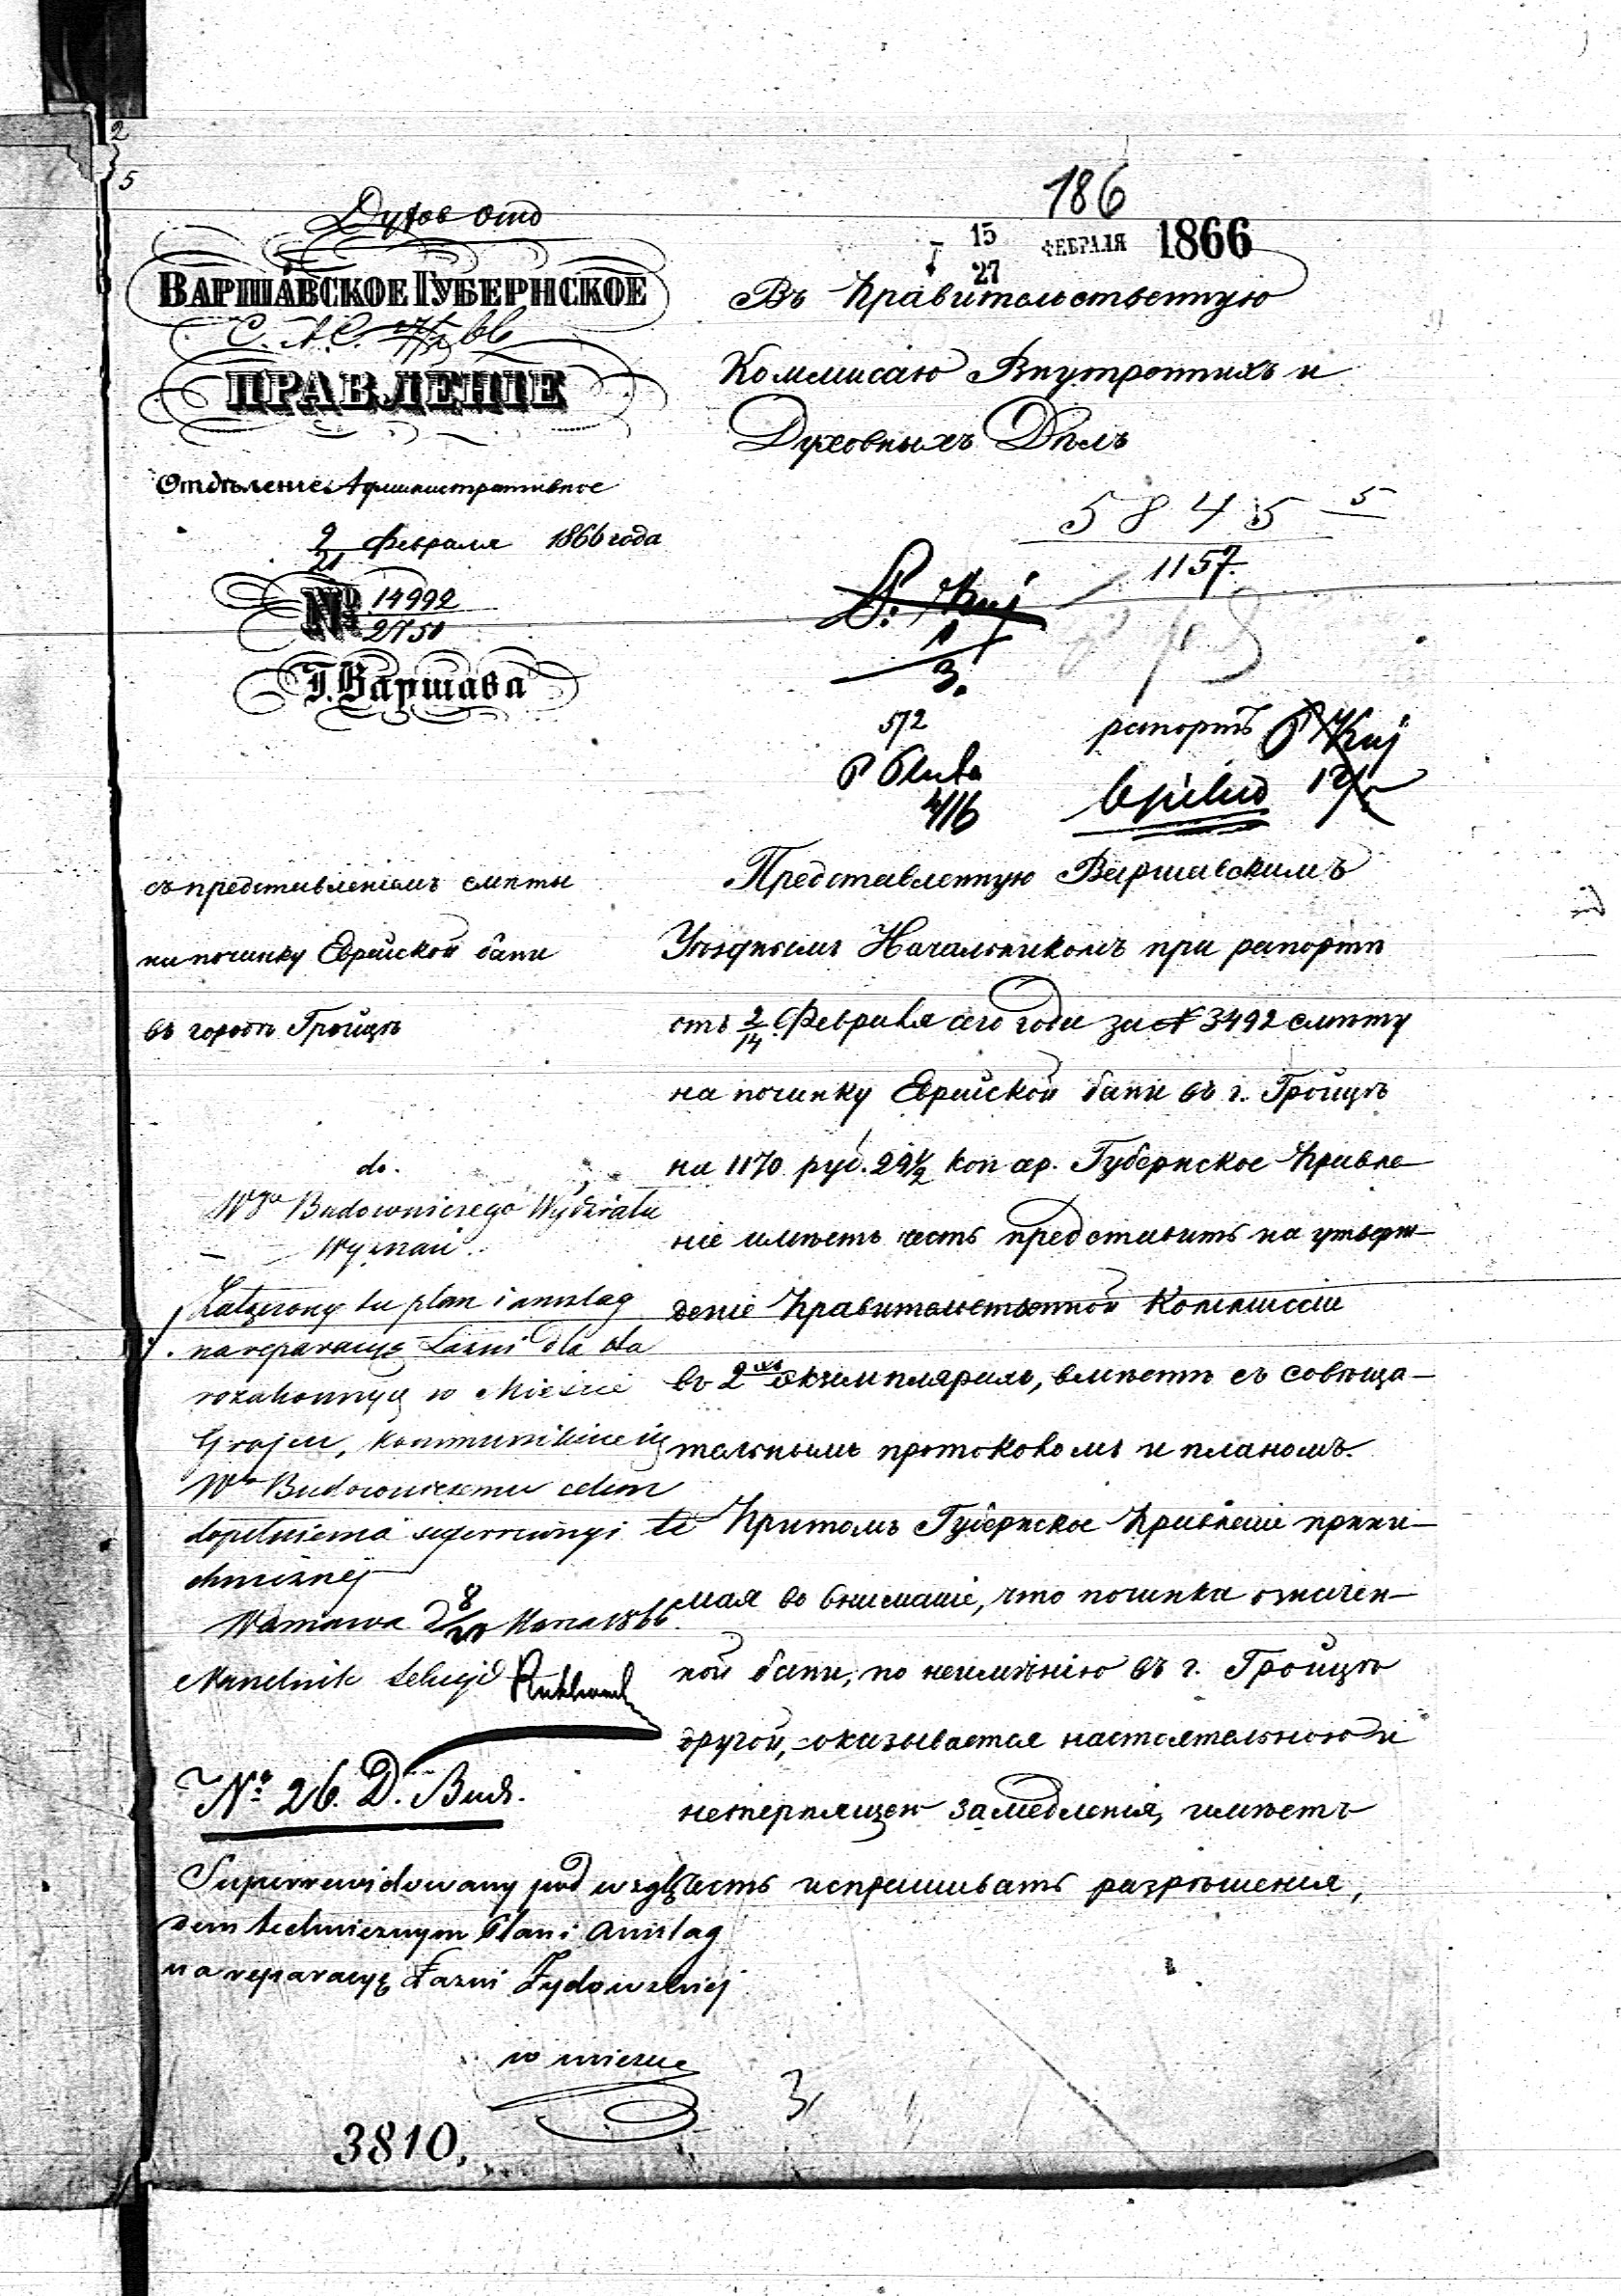 2
5
186
15
27
ФЕВРАЛЯ 1866
Духов отд
ВАРШАВСКОЕ ГУБЕРНСКОЕ
ПРАВЛЕНІЕ
Отдѣленіе Административное
9/21 Февраля 1866 года
№ 14992/2751
Г. Варшава
Въ Правительственную
Коммисію Внутреннихъ и
Духовныхъ Дѣлъ
5845 5
1157
572
4/16
рапортъ
съ представленіемъ смѣты
на починку Еврейской бани
въ городѣ Гройцѣ
Представленную Варшавскимъ
Уѣзднымъ Начальникомъ при рапортѣ
отъ 2/14 Февраля сего года за № 3492 смѣту
на починку Еврейской бани въ г. Гройцѣ
на 1170 руб. 29½ коп сер. Губернское Правле-
ніе имѣетъ честь представить на утверж-
деніе Правительственной Коммиссіи
въ 2хъ экземплярахъ, вмѣстѣ съ совѣща-
тельнымъ протоколомъ и планомъ.
Притомъ Губернское Правленіе прини-
мая во вниманіе, что починка означен-
ной бани, по неимѣнію въ г. Гройцѣ
другой, оказывается настоятельною и
нетерпящею замедленія, имѣетъ
честь испрашивать разрѣшенія,
do.
Wgo Budowniczego Wydziału
Wyznań
Załączony tu plan i anszlag
na reparacyę Łazni dla sta
rozakonnych w Mieście
Grojcu, kommunikuje się
Wu Budowniczemu celem
dopełnienia superrewizyi te
chnicznéj
Warszawa d 8/20 Marca 1866.
Naczelnik Sekcyi
№ 26. D. Bud.
Superrewidowany pod wzglę
dem technicznym Plan i Anszlag
na reparacyę Łazni Żydowskiej
w mieście
3
3810.